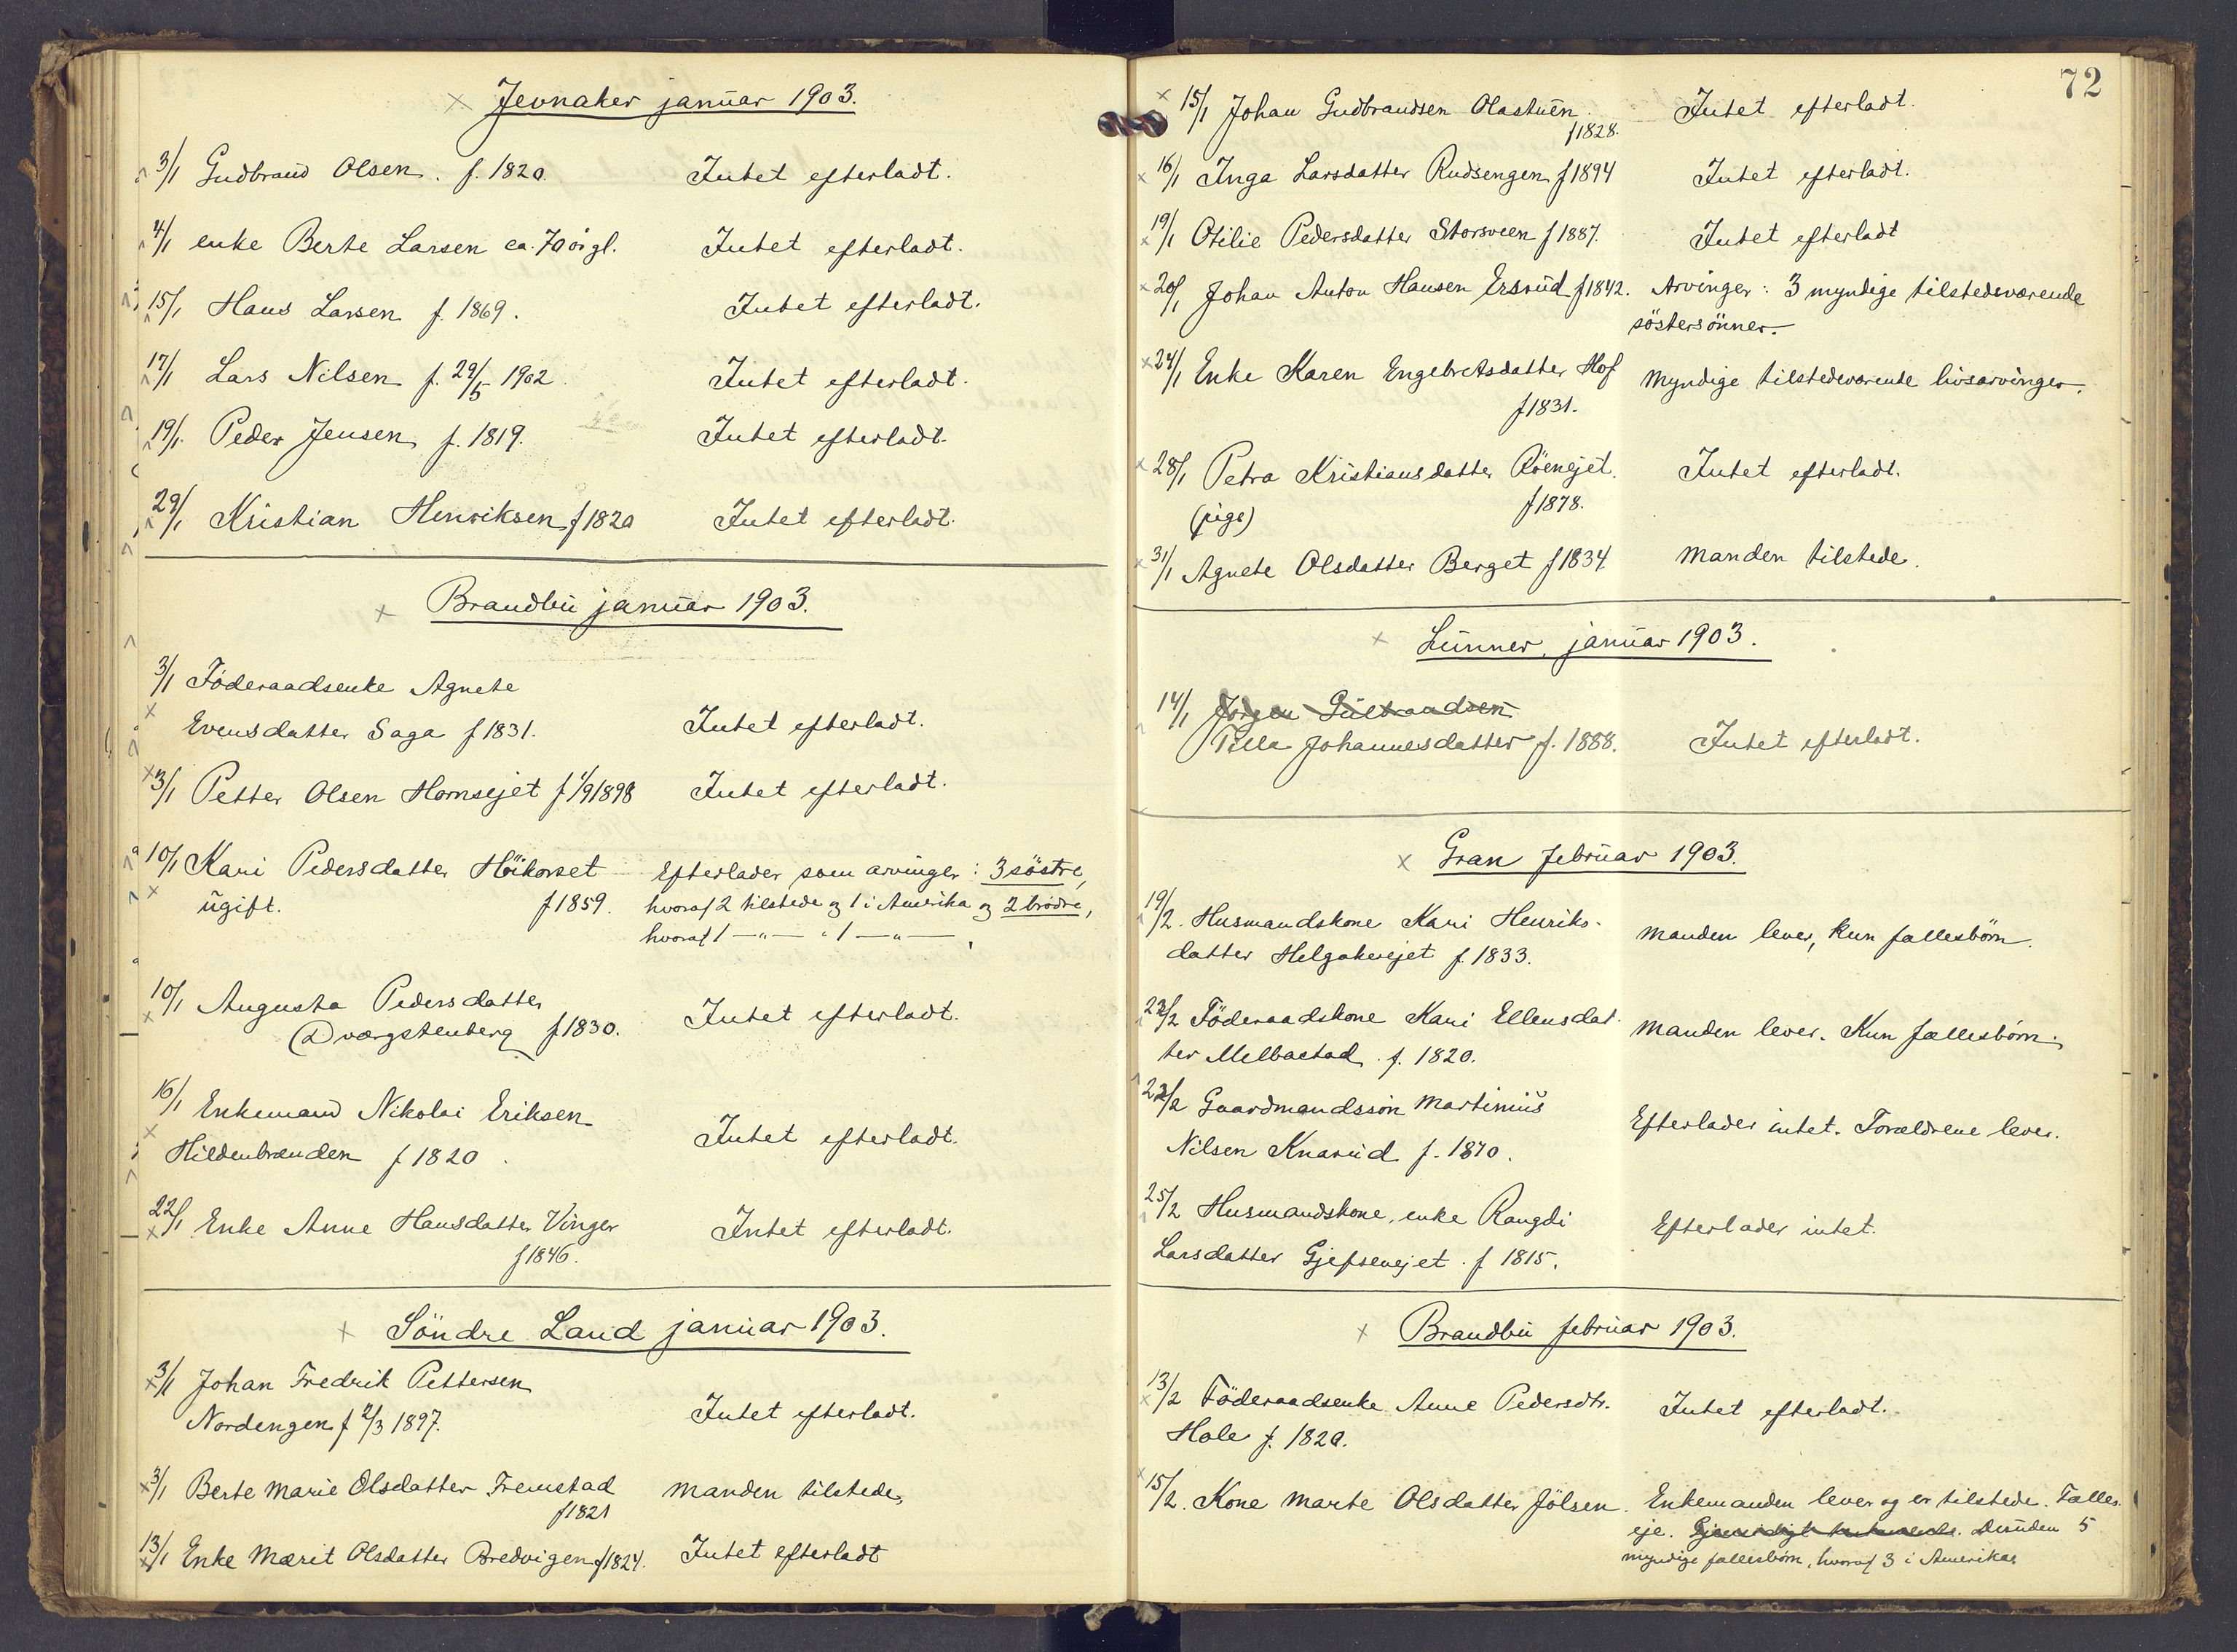 Jevnaker januar 1903.
3/1 Gudbrand Olsen. f. 1820. Intet efterladt.
4/1 enke Berte Larsen ca. 70 år gl. Intet efterladt.
15/1 Hans Larsen f. 1869. Intet efterladt.
17/1 Lars Nilsen f. 29/5 1902. Intet efterladt.
19/1. Peder Jensen f. 1819. Intet efterladt.
29/1 Kristian Henriksen f 1820 Intet efterladt.
Brandbu januar 1903.
3/1 Föderaadsenke Agnete
Evensdatter Saga f 1831. Intet efterladt.
3/1 Petter Olsen Hornsejet f 1/9 1898 Intet efterladt.
10/1 Kari Pedersdatter Höikorset Efterlader som arvinger: 3 söstre,
ugift. f 1859. hvoraf 2 tilstede og 1 i Amerika og 2 brödre,
hvoraf 1 —„— „ 1 —„— ,
10/1 Augusta Pedersdatter
(Dværgstenberg f 1830. Intet efterladt.
16/1 Enkemand Nikolai Eriksen
Hildenbrænden f 1820. Intet efterladt.
22/1 Enke Anne Hansdatter Vinger Intet efterladt.
f 1846.
Söndre Land januar 1903.
3/1 Johan Fredrik Pettersen
Nordengen f 2/3 1897. Intet efterladt.
3/1 Berte Marie Olsdatter Fremstad Manden tilstede,
f 1821
13/1 Enke Marit Olsdatter Bredvigen f 1824. Intet efterladt
72
15/1 Johan Gudbrandsen Olastuen. Intet efterladt.
f 1828.
16/1 Inga Larsdatter Rudsengen f 1894 Intet efterladt.
19/1 Otilie Pedersdatter Storsveen f 1887. Intet efterladt
20/1 Johan Anton Hansen Ersrud f 1842. Arvinger: 3 myndige tilstedeværende
söstersönner.
24/1 Enke Karen Engebretsdatter Hof Myndige tilstedeværende livsarvinger.
f 1831.
28/1 Petra Kristiansdatter Röenejet. Intet efterladt.
(pige) f 1878.
31/1 Agnete Olsdatter Berget f 1834 Manden tilstede.
Lunner, januar 1903.
14/1 Jörgen Gulbrandsen
Pilla Johannesdatter f. 1888. Intet efterladt.
Gran februar 1903.
19/2. Husmandskone Kari Henriks-
datter Helgakerejet f. 1833. Manden lever, kun fællesbörn.
23/2 Föderaadskone Kari Ellensdat-
ter Melbastad. f. 1820. Manden lever. Kun fællesbörn.
23/2 Gaardmandssön Martinius
Nilsen Knarud f. 1870. Efterlader intet. Forældrene lever.
25/2 Husmandskone, enke Rangdi
Larsdatter Gjefsenejet. f 1815. Efterlader intet.
Brandbu februar 1903.
13/2 Föderaadsenke Anne Pedersdtr. Intet efterladt.
Hole f. 1820.
15/2. Kone Marte Olsdatter Jölsen. Enkemanden lever og er tilstede. Fælles-
eje. Gjensidigt testamente. Desuden 5
myndige fællesbörn, hvoraf 3 i Amerika.